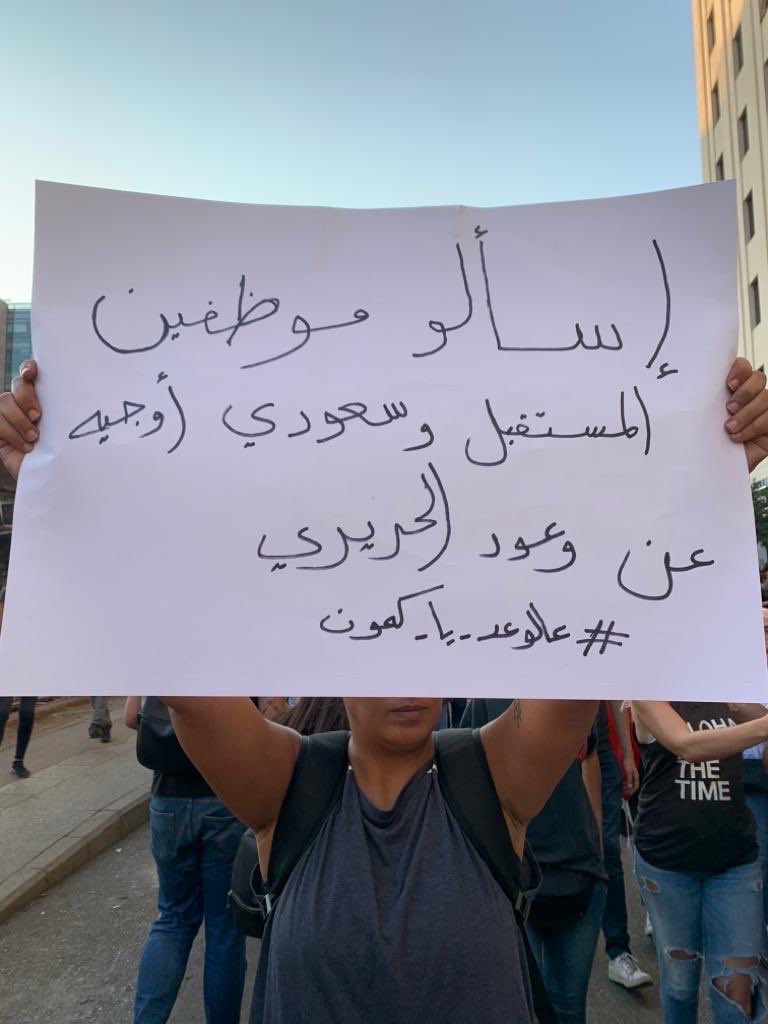 إسألو موظفين
المستقبل وسعودي أوجيه
عن وعود الحريري
#عالوعد_يا_كمون
THE
TIME